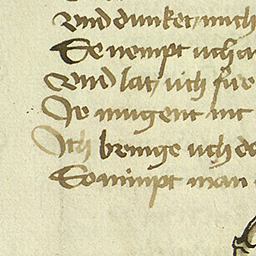 vnd dunket mich
So nempt uch
vnd lat uch fur
Ir mugent nit
Ich bringe uch
So nimpt man